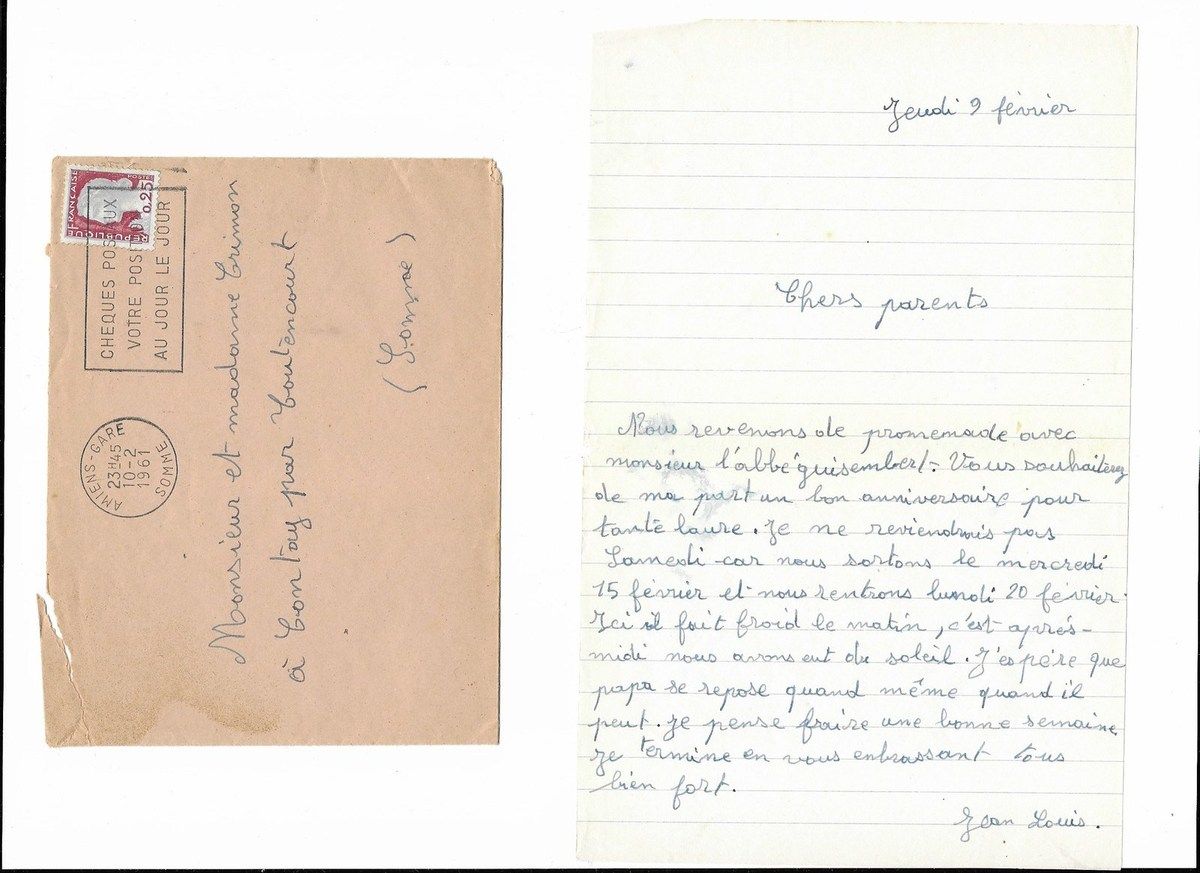 REPUBLIQUE FRANÇAISE
0,25
CHEQUES POSTAUX
VOTRE POSI
AU JOUR LE JOUR
AMIENS-GARE
23H45
10-2
1961
SOMME
Monsieur et madame Crimon
à Contay par Toutencourt
(Somme)
Jeudi 9 février
Chers parents
Nous revenons de promenade avec
monsieur l'abbé guisembert. Vous souhaiterez
de ma part un bon anniversaire pour
tante laure. Je ne reviendrais pas
Samedi car nous sortons le mercredi
15 février et nous rentrons lundi 20 février.
Ici il fait froid le matin, c'est après-
midi nous avons eut du soleil. J'espère que
papa se repose quand même quand il
peut. Je pense fraire une bonne semaine.
Je termine en vous enbrassant tous
bien fort.
Jean Louis.